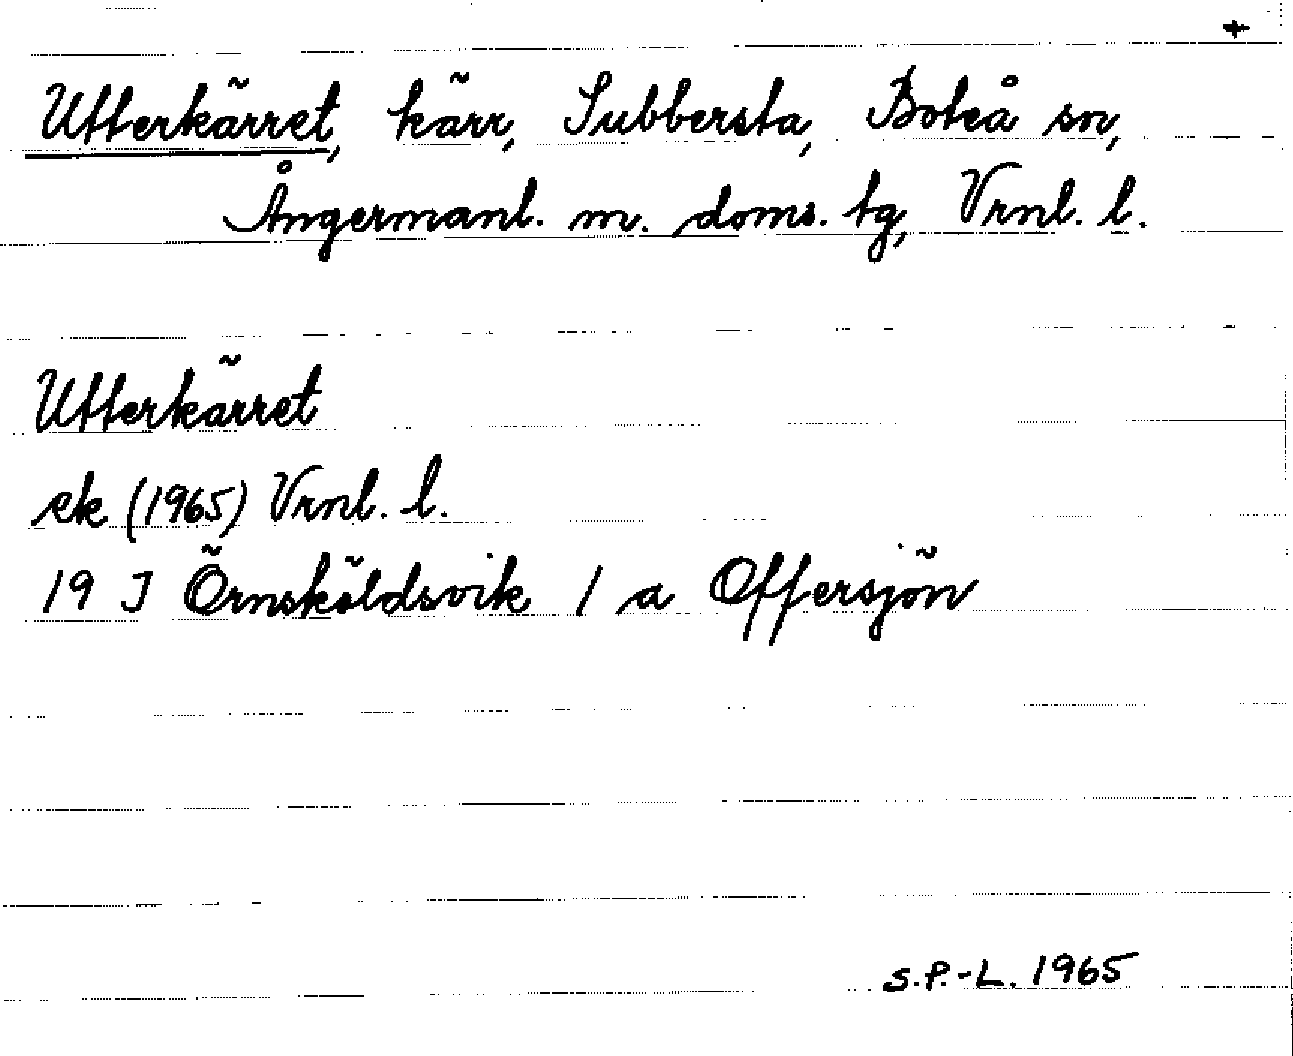 +
Utterkärret, kärr, Subbersta, Boteå sn,
Ångermanl. m. doms. tg, Vrnl. l.
Utterkärret
ek (1965) Vrnl. l.
19 J Örnsköldsvik 1 a Offersjön
S.P.-L. 1965